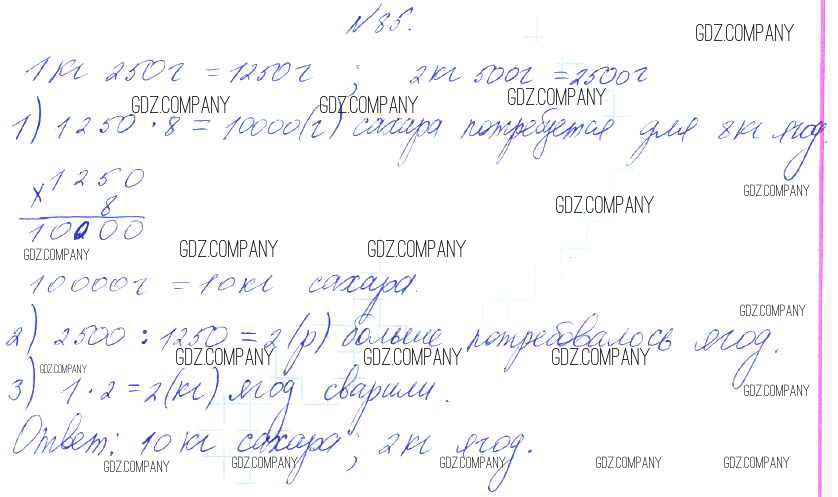 №85.
GDZ.COMPANY
1кг 250г = 1250г ; 2кг 500г = 2500г
GDZ.COMPANY GDZ.COMPANY GDZ.COMPANY
1) 1250 · 8 = 10000(г) сахара потребуется для 8кг ягод.
× 1250
GDZ.COMPANY
8
GDZ.COMPANY
10000
GDZ.COMPANY GDZ.COMPANY GDZ.COMPANY
10000г = 10кг сахара.
GDZ.COMPANY
2) 2500 : 1250 = 2(р) больше потребовалось ягод.
GDZ.COMPANY GDZ.COMPANY GDZ.COMPANY
GDZ.COMPANY
3) 1 · 2 = 2(кг) ягод сварили.
GDZ.COMPANY
Ответ: 10кг сахара; 2кг ягод.
GDZ.COMPANY GDZ.COMPANY GDZ.COMPANY GDZ.COMPANY GDZ.COMPANY